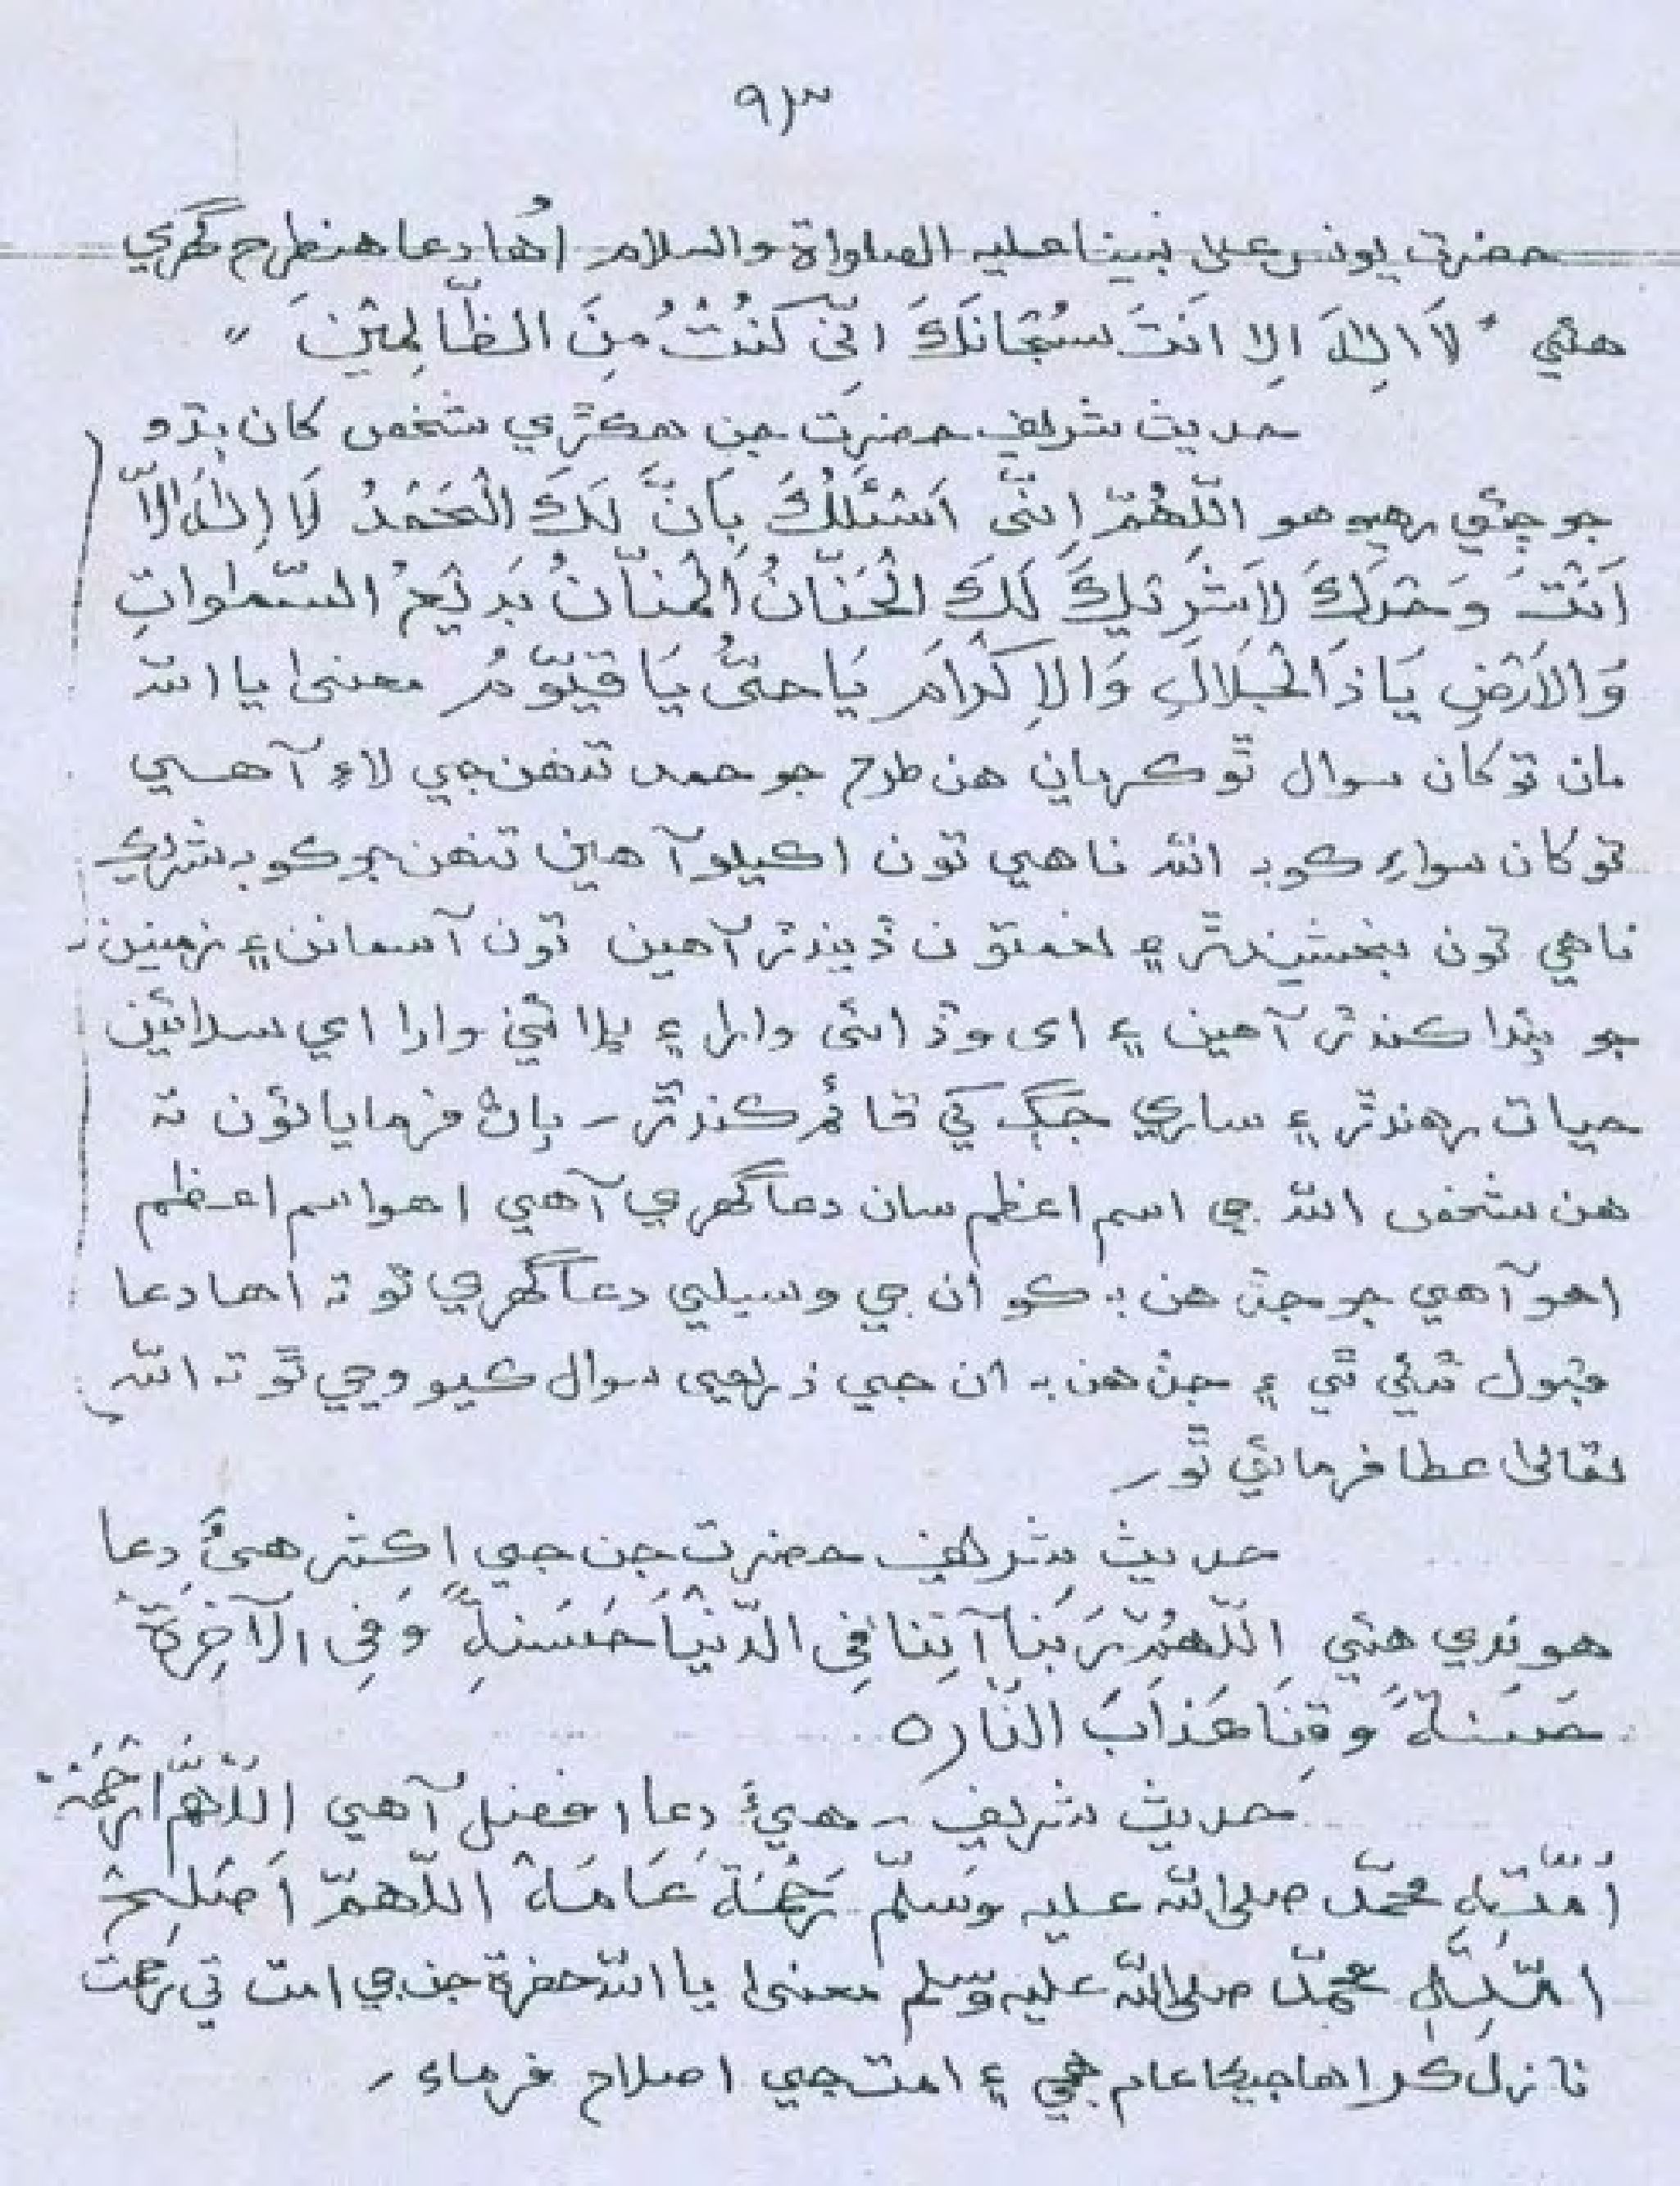 ٩٣
حضرت يونس علیٰ نبينا عليه الصلواة والسلام اُها دعا هنطرح گهري
هئي " لَا اِلٰهَ اِلا اَنتَ سُبْحَانَكَ اِنّی كُنْتُ مِنَ الظّالِمِيْنَ "
حديث شريف حضرت جن هڪڙي شخص کان ٻڌو
جو چئي رهيو هو اَللّٰهُمَّ اِنّی اَسْئَلُكَ بِاَنَّ لَكَ الْحَمْدُ لَا اِلٰهَ اِلَّا
اَنْتَ وَحْدَكَ لَا شَرِيْكَ لَكَ الْحَنَّانُ الْمَنَّانُ بَدِيْعُ السَّمٰواتِ
وَالْاَرْضِ يَا ذَالْجَلَالِ وَالْاِكْرَامِ يَا حَیُّ يَا قَيُّوْمُ معنیٰ يا الله
مان توکان سوال ٿو ڪريان هن طرح جو حمد تنهن جي لاءِ آهي
توکان سواءِ ڪو به الله ناهي تون اڪيلو آهين تنهن جو ڪو به شريڪ
ناهي تون بخشيندڙ ۽ نعمتون ڏيندڙ آهين تون آسمانن ۽ زمينن
جو پيدا ڪندڙ آهين ۽ ای وڏائی وارا ۽ ڀلائي وارا اي سدائين
حيات رهندڙ ۽ ساري جڳ کي قائم ڪندڙ ۔ پاڻ فرمايائون ته
هن شخص الله جي اسم اعظم سان دعا گهري آهي اهو اسم اعظم
اهو آهي جو جڏهن به ڪو ان جي وسيلي دعا گهري ٿو ته اها دعا
قبول ٿئي ٿي ۽ جڏهن به ان جي ذريعي سوال ڪيو وڃي ٿو ته الله
تعالیٰ عطا فرمائي ٿو ۔
حديث شريف حضرت جن جي اڪثر هیءَ دعا
هوندي هئي اَللّٰهُمَّ رَبَنا آتِنا فِی الدُّنْيَا حَسَنَةً وَفِی الْآخِرَةِ
حَسَنَةً وَقِنَا عَذَابَ النَّارِ ٥
حديث شريف ۔ هيءَ دعا افضل آهي اَللّٰهُمَّ ارْحَمْ
اُمَّتِهِ محمّد صلی الله عليه وسلّم رَحْمَةً عَامَةً اَللّٰهُمّ اَصْلِحْ
اُمَّتِهِ محمّد صلی الله عليه وسلم معنیٰ يا الله حضرة جن جي امت تي رحمت
نازل ڪر اها جيڪا عام هجي ۽ امت جي اصلاح فرماء ۔